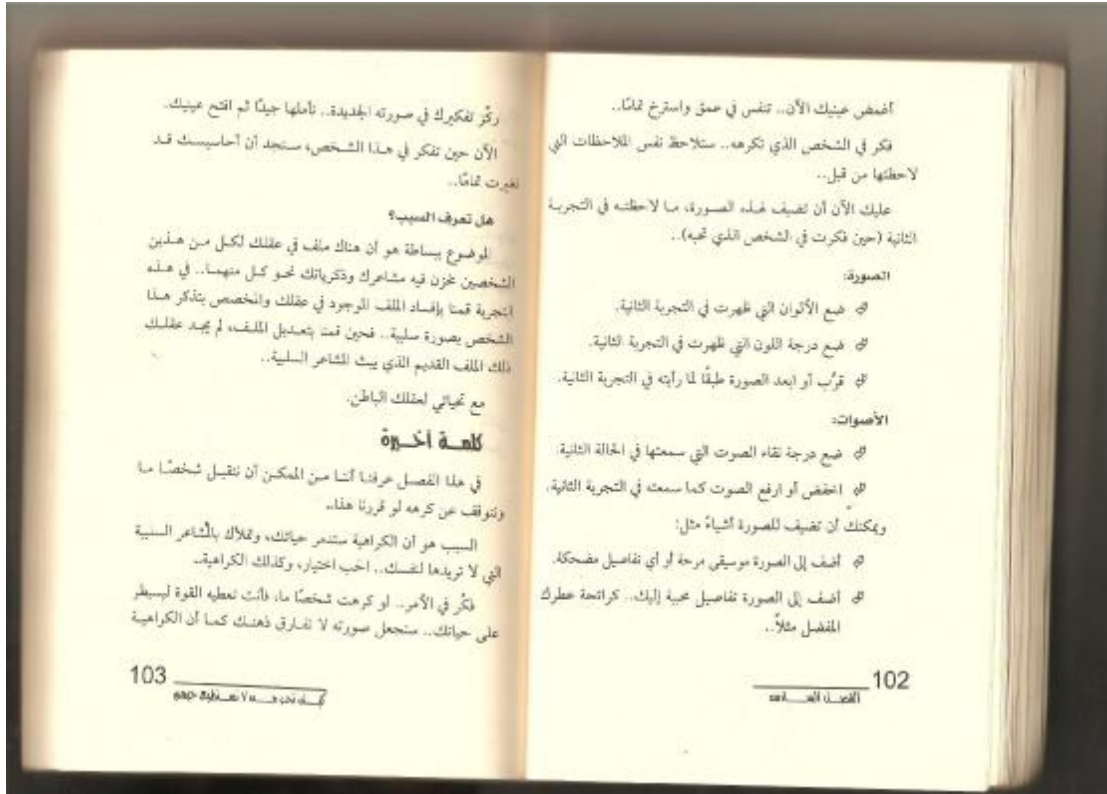 أغمض عينيك الآن.. تنفس في عمق واسترخ تمامًا..
فكر في الشخص الذي تكرهه.. ستلاحظ نفس الملاحظات التي
لاحظتها من قبل..
عليك الآن أن تضيف لهذه الصورة، ما لاحظته في التجربة
الثانية (حين فكرت في الشخص الذي تحبه)..
الصورة:
ضع الألوان التي ظهرت في التجربة الثانية.
ضع درجة اللون التي ظهرت في التجربة الثانية.
قرِّب أو ابعد الصورة طبقًا لما رأيته في التجربة الثانية.
الأصوات:
ضع درجة نقاء الصوت التي سمعتها في الحالة الثانية.
اخفض أو ارفع الصوت كما سمعته في التجربة الثانية.
ويمكنك أن تضيف للصورة أشياءً مثل:
أضف إلى الصورة موسيقى مرحة أو أي تفاصيل مضحكة.
أضف إلى الصورة تفاصيل محببة إليك.. كرائحة عطرك
المفضل مثلاً..
102
الفصل السادس
ركِّز تفكيرك في صورته الجديدة.. تأملها جيدًا ثم افتح عينيك.
الآن حين تفكر في هذا الشخص، ستجد أن أحاسيسك قد
تغيرت تمامًا..
هل تعرف السبب؟
الموضوع ببساطة هو أن هناك ملف في عقلك لكل من هذين
الشخصين تخزن فيه مشاعرك وذكرياتك نحو كل منهما.. في هذه
التجربة قمنا بإفساد الملف الموجود في عقلك والمخصص بتذكر هذا
الشخص بصورة سلبية.. فحين قمنا بتعديل الملف، لم يجد عقلك
ذلك الملف القديم الذي يبث المشاعر السلبية..
مع تحياتي لعقلك الباطن.
كلمة أخيرة
في هذا الفصل عرفنا أننا من الممكن أن نتقبل شخصًا ما
ونتوقف عن كرهه لو قررنا هذا..
السبب هو أن الكراهية ستدمر حياتك، وتملأك بالمشاعر السلبية
التي لا تريدها لنفسك.. الحب اختيار، وكذلك الكراهية..
فكِّر في الأمر.. لو كرهت شخصًا ما، فأنت تعطيه القوة ليسيطر
على حياتك.. ستجعل صورته لا تفارق ذهنك كما أن الكراهية
103
كيف تحب من لا تستطيع حبهم